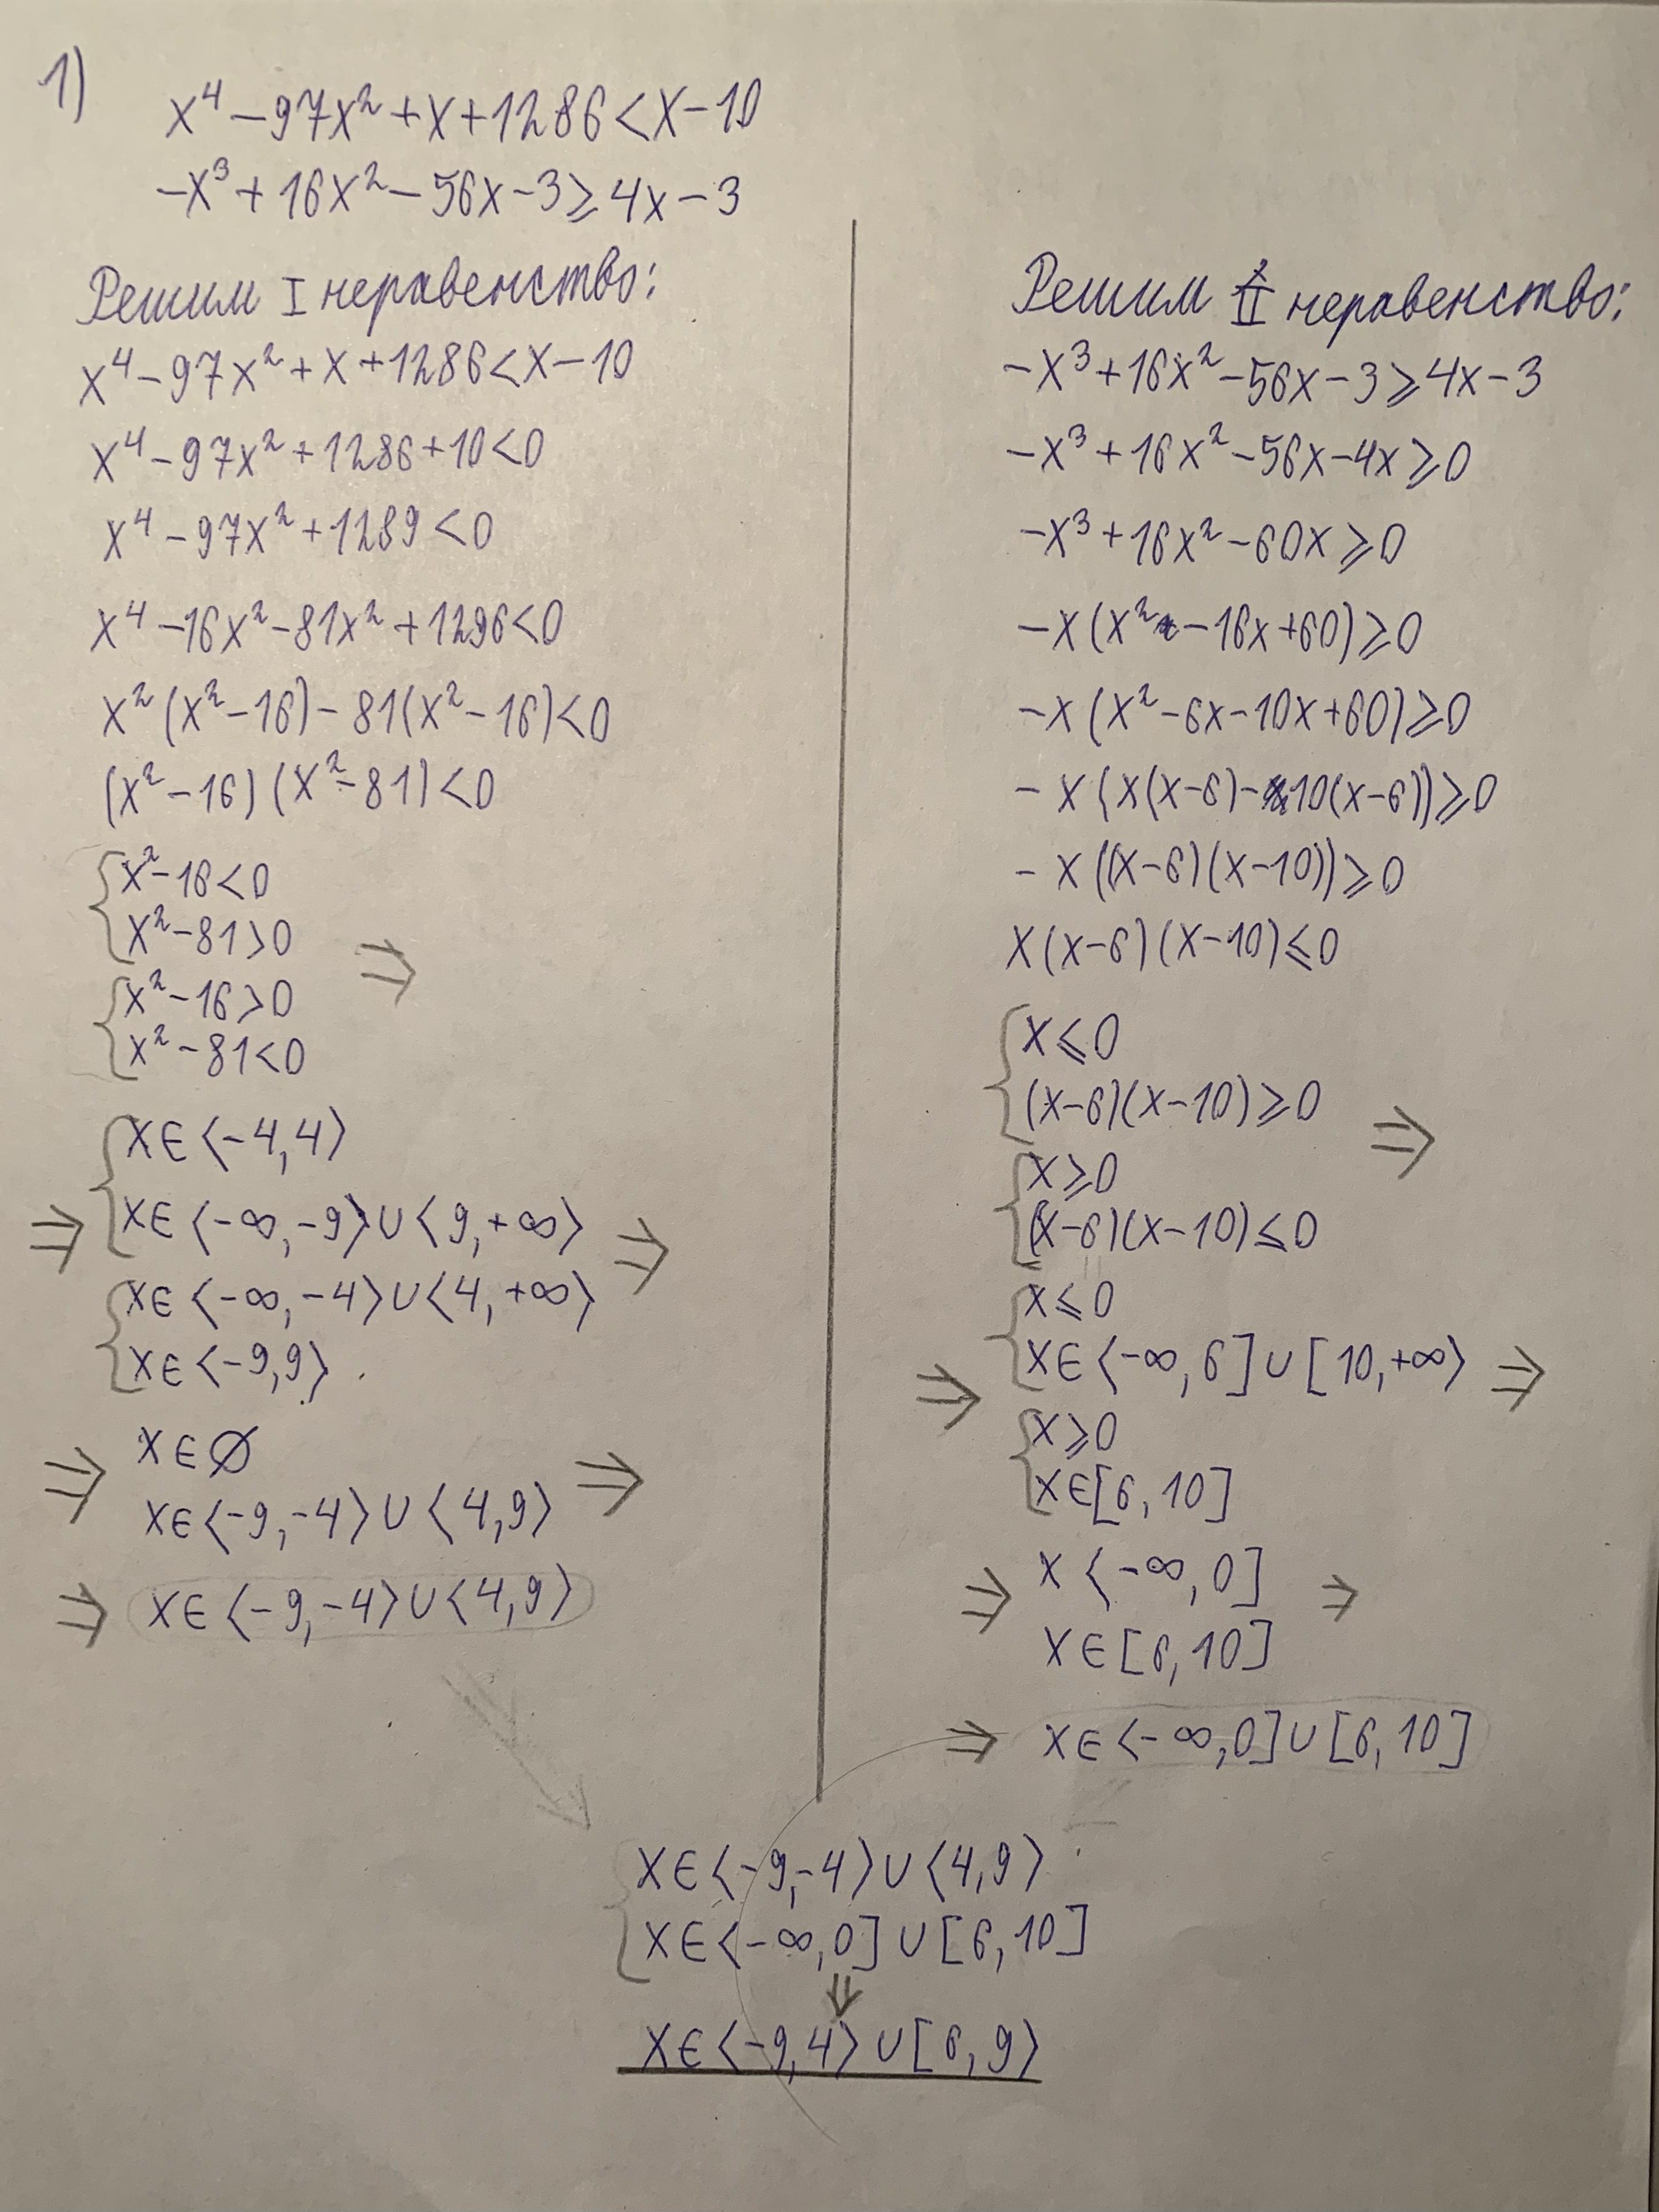 1)
x⁴ − 97x² + x + 1286 < x − 10
−x³ + 16x² − 56x − 3 ⩾ 4x − 3
Решим I неравенство:
x⁴ − 97x² + x + 1286 < x − 10
x⁴ − 97x² + 1286 + 10 < 0
x⁴ − 97x² + 1289 < 0
x⁴ − 16x² − 81x² + 1296 < 0
x² (x² − 16) − 81(x² − 16) < 0
(x² − 16) (x² − 81) < 0
{ x² − 16 < 0
x² − 81 > 0 ⇒
{ x² − 16 > 0
x² − 81 < 0
{ x ∈ ⟨−4, 4⟩
⇒ x ∈ ⟨−∞, −9⟩ ∪ ⟨9, +∞⟩ ⇒
{ x ∈ ⟨−∞, −4⟩ ∪ ⟨4, +∞⟩
x ∈ ⟨−9, 9⟩
⇒ x ∈ ∅
x ∈ ⟨−9, −4⟩ ∪ ⟨4, 9⟩ ⇒
⇒ x ∈ ⟨−9, −4⟩ ∪ ⟨4, 9⟩
Решим II неравенство:
−x³ + 16x² − 56x − 3 ⩾ 4x − 3
−x³ + 16x² − 56x − 4x ⩾ 0
−x³ + 16x² − 60x ⩾ 0
−x (x² − 16x + 60) ⩾ 0
−x (x² − 6x − 10x + 60) ⩾ 0
− x (x(x − 6) − 10(x − 6)) ⩾ 0
− x ((x − 6)(x − 10)) ⩾ 0
x (x − 6) (x − 10) ⩽ 0
{ x ⩽ 0
(x − 6)(x − 10) ⩾ 0 ⇒
{ x ⩾ 0
(x − 6)(x − 10) ⩽ 0
{ x ⩽ 0
⇒ x ∈ ⟨−∞, 6] ∪ [10, +∞⟩ ⇒
{ x ⩾ 0
x ∈ [6, 10]
⇒ x ⟨−∞, 0] ⇒
x ∈ [6, 10]
⇒ x ∈ ⟨−∞, 0] ∪ [6, 10]
{ x ∈ ⟨−9, −4⟩ ∪ ⟨4, 9⟩
x ∈ ⟨−∞, 0] ∪ [6, 10]
⇓
x ∈ ⟨−9, 4⟩ ∪ [6, 9⟩